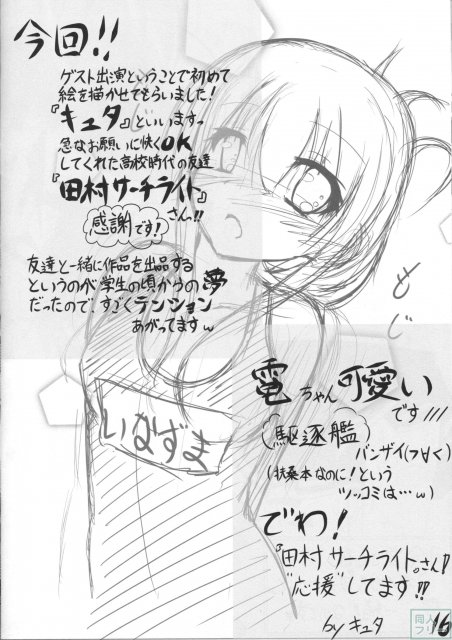 今回!!
ゲスト出演ということで初めて
絵を描かせてもらいました!
『キュタ』といいますっ
急なお願いに快くOK
してくれた高校時代の友達
『田村サーチライト』
さんっ!!
感謝です!
友達と一緒に作品を出品する
というのが学生の頃からの夢
だったので、すごくテンション
あがってますw
もじ
電ちゃん可愛い
です///
駆逐艦
バンザイ(つ∀く)
(扶桑本なのに!という
ツッコミは…w)
いなずま
でわ!
『田村サーチライト』さん!
"応援"してます!!
by キュタ
16
同人
フリー